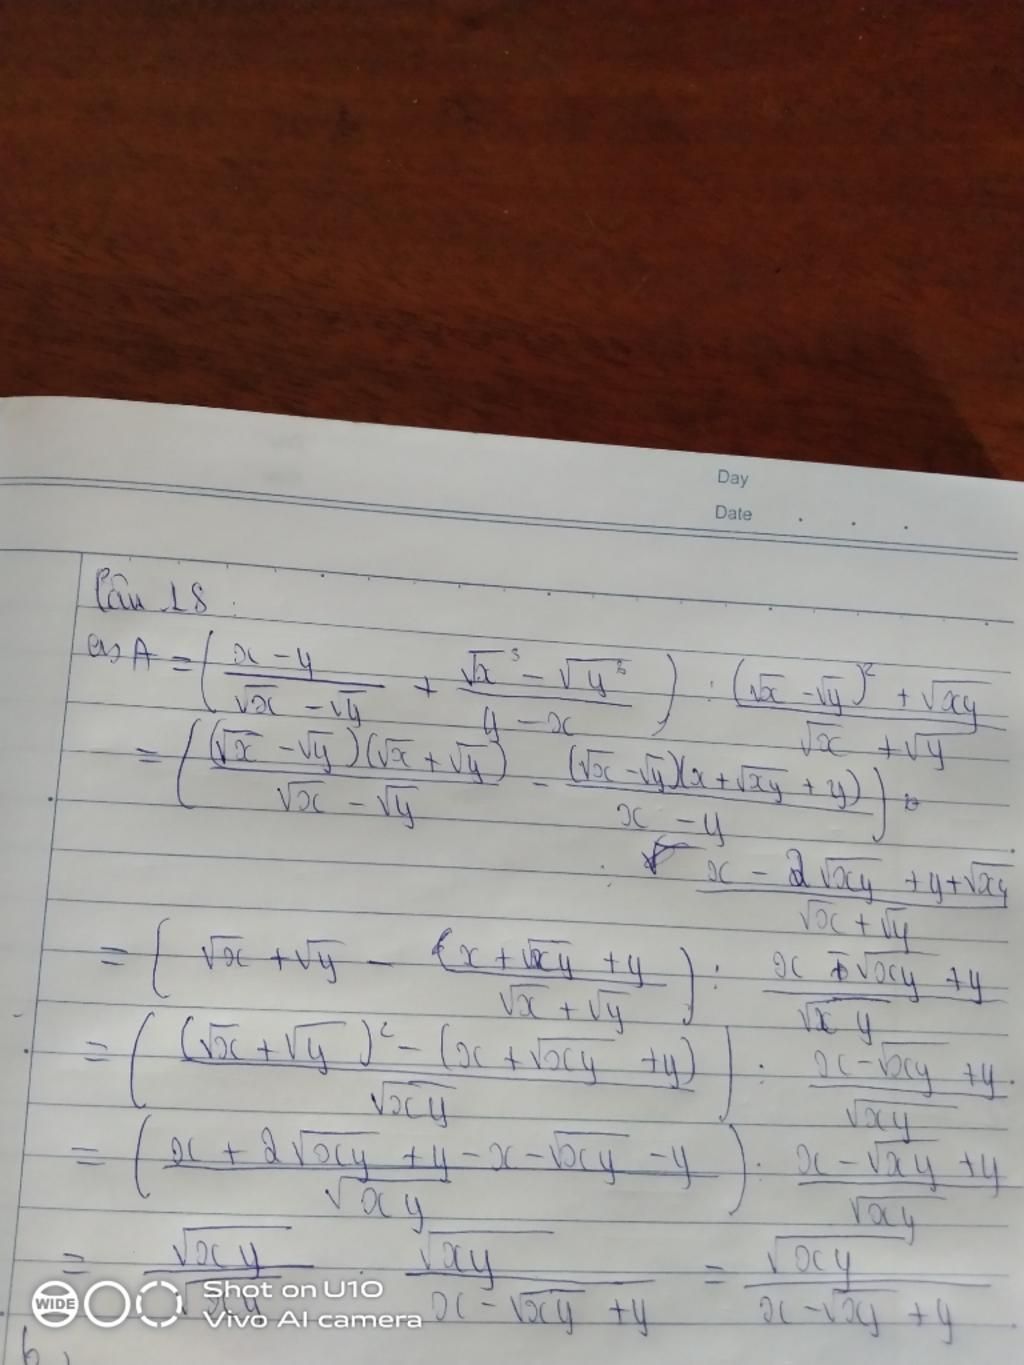 Day
Date . . .
Câu 18:
a, A = ( (x - y)/(√x - √y) + (√x³ - √y³)/(y - x) ) : ((√x - √y)² + √xy)/(√x + √y)
= ( ((√x - √y)(√x + √y))/(√x - √y) - ((√x - √y)(x + √xy + y))/(x - y) )
: (x - 2√xy + y + √xy)/(√x + √y)
= ( √x + √y - (x + √xy + y)/(√x + √y) ) : (x - √xy + y)/(√x y)
= ( ((√x + √y)² - (x + √xy + y))/√xy ) : (x - √xy + y)/√xy
= ( (x + 2√xy + y - x - √xy - y)/√xy ) . (x - √xy + y)/√xy
= √xy/√xy . √xy/(x - √xy + y) = √xy/(x - √xy + y)
WIDE Shot on U10
Vivo AI camera
b,